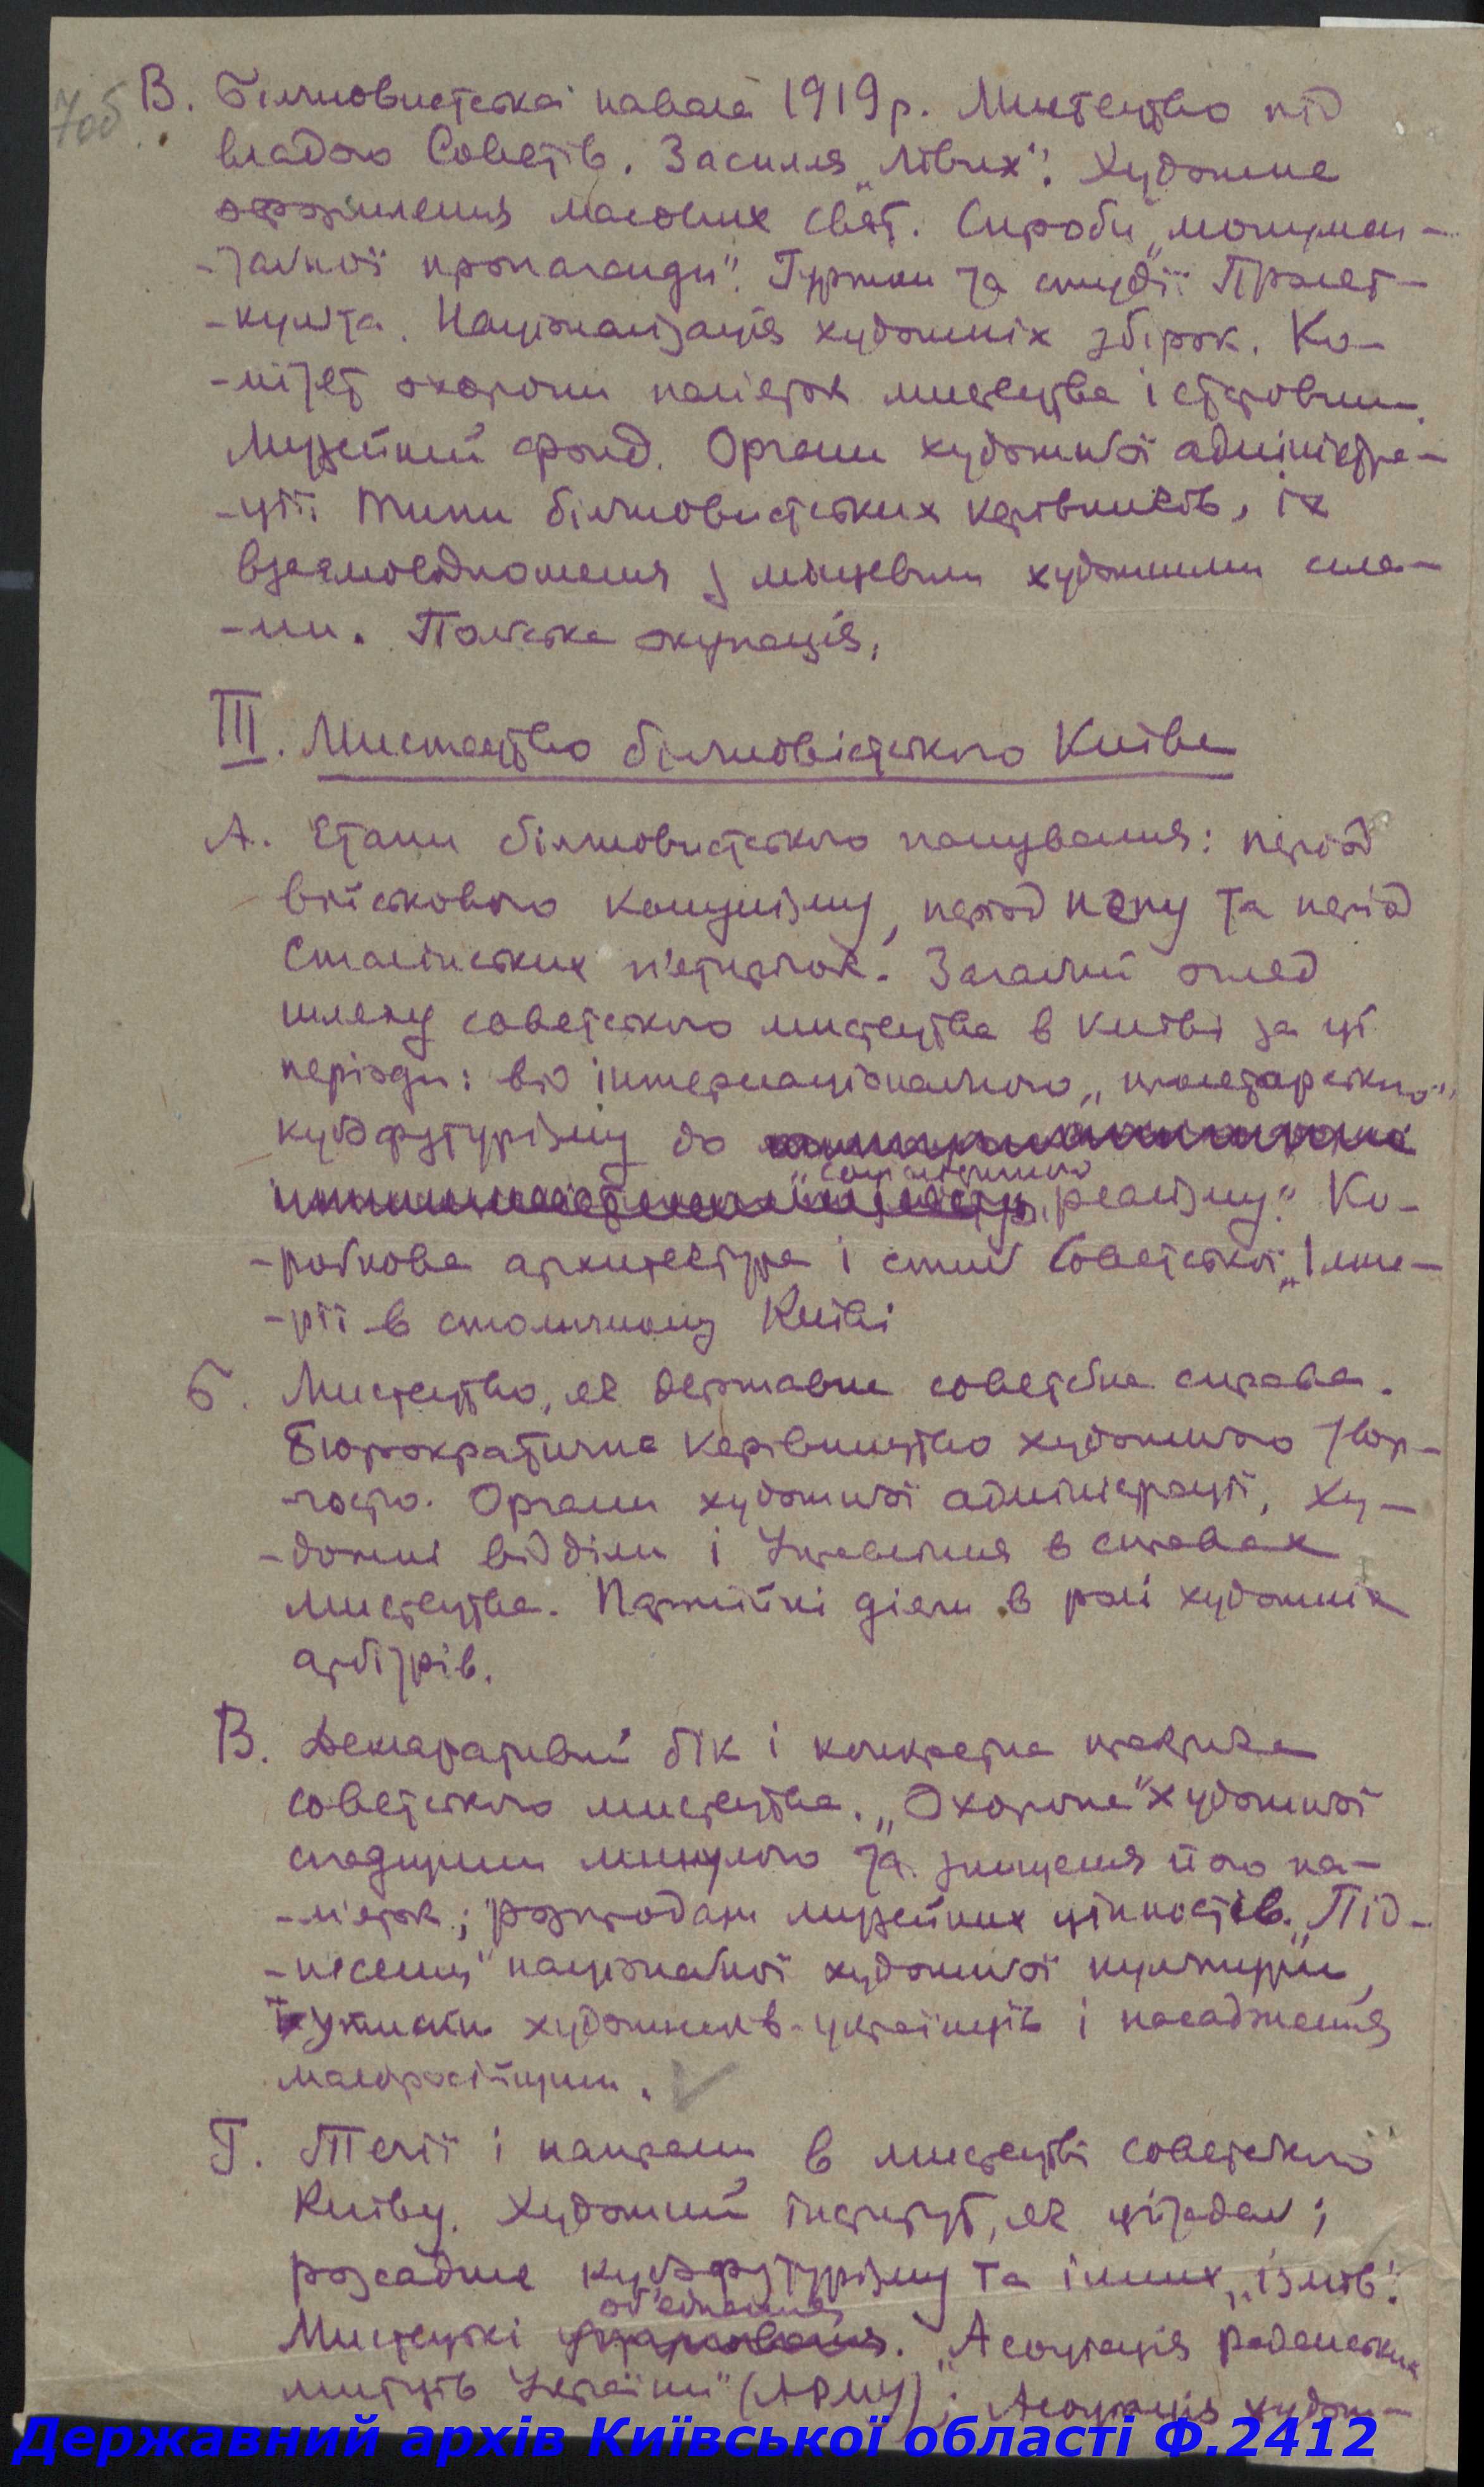 7об
В. Більшовистська навала 1919 р. Мистецтво під
владою Советів. Засилля „лівих“. Художнє
оформлення масових свят. Спроби „монумен-
-тальної пропаганди“. Гуртки та студії Пролет-
-культа. Націоналізація художніх збірок. Ко-
-мітет охорони пам'яток мистецтва і старовини.
Музейний фонд. Органи художньої адміністра-
-ції. Типи більшовистських керівників, їх
взаємовідношення з місцевими художніми сила-
-ми. Польська окупація.
III. Мистецтво більшовістського Києва
А. Етапи більшовистського панування: період
військового комунізму, період непу та період
Сталінських п'ятирічок. Загальний огляд
шляху советського мистецтва в Києві за ці
періоди: від інтернаціонального „пролетарського“
кубофутурізму до
„соціалістичного
реалізму“. Ко-
-робкова архитектура і стиль Советської „Імпе-
-рії в столичному Києві
Б. Мистецтво, як державна советська справа.
Бюрократичне керівництво художньою твор-
-чостю. Органи художньої адміністрації, ху-
-дожні відділи і Управління в справах
мистецтва. Партійні діячи в ролі художніх
арбітрів.
В. Декларативний бік і конкретна практика
советського мистецтва. „Охорона“ художньої
спадщини минулого та знищення його па-
-м'яток; розпродаж музейних цінностів. „Під-
-несення“ національної художньої культури,
утиски художників-українців і насадження
малоросійщини.
Г. Течії і напрями в мистецтві советського
Києву. Художний інститут, як цітадель і
розсадник кубофутурізму та інших „ізмів“.
об'єднання
Мистецькі угрповання. „Асоціація радянських
митців України“ (АРМУ); Асоціація худож-
Державний архів Київської області Ф.2412